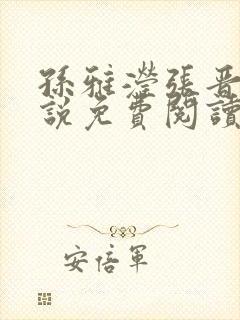 孫雅瀅張晋
說免費閱讀
安倍軍